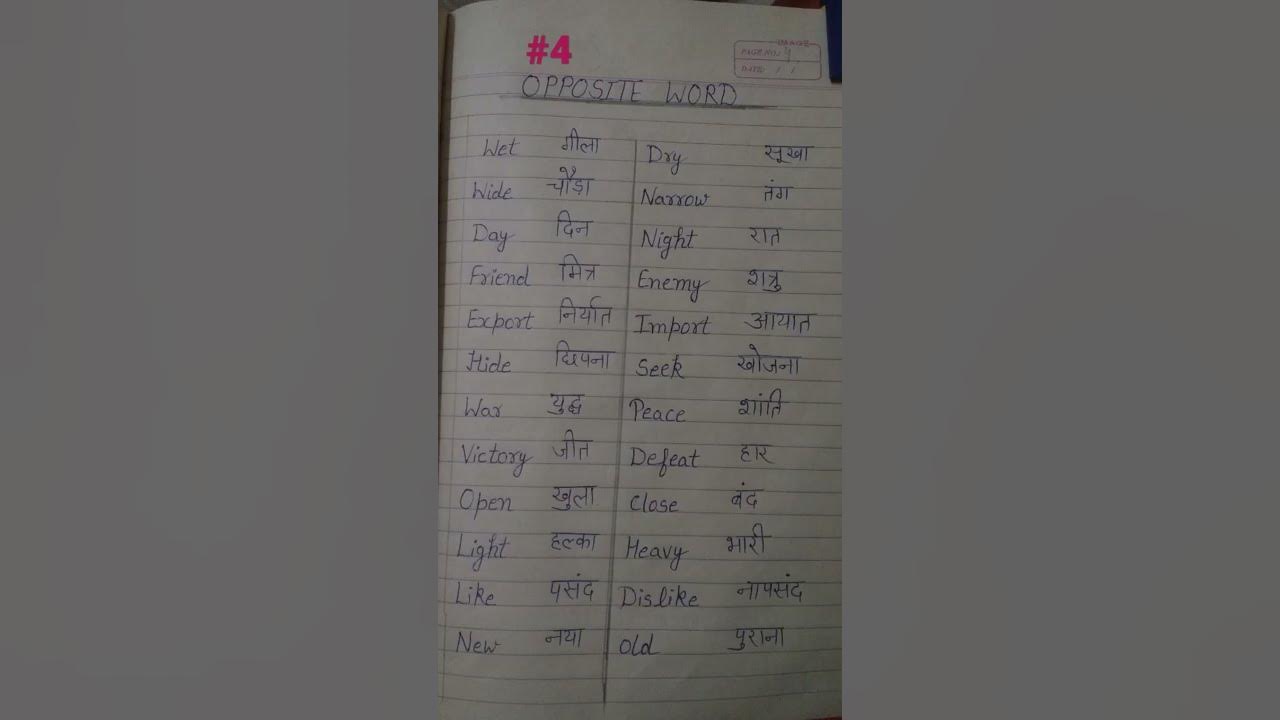 #4
IMAGE
PAGE NO. 4
DATE / /
OPPOSITE WORD
Wet गीला Dry सूखा
Wide चौड़ा Narrow तंग
Day दिन Night रात
Friend मित्र Enemy शत्रु
Export निर्यात Import आयात
Hide छिपना Seek खोजना
War युद्ध Peace शांति
Victory जीत Defeat हार
Open खुला Close बंद
Light हल्का Heavy भारी
Like पसंद Dislike नापसंद
New नया Old पुराना